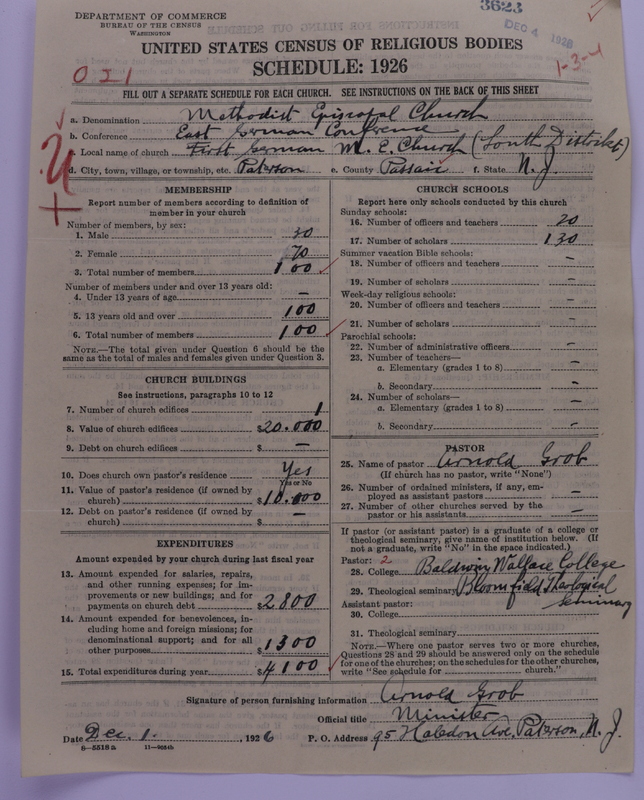 DEPARTMENT OF COMMERCE
BUREAU OF THE CENSUS
WASHINGTON
3623
DEC 4 1926
UNITED STATES CENSUS OF RELIGIOUS BODIES
SCHEDULE: 1926
O I 1
1-3-4
FILL OUT A SEPARATE SCHEDULE FOR EACH CHURCH. SEE INSTRUCTIONS ON THE BACK OF THIS SHEET
a. Denomination Methodist Episcopal Church
b. Conference East German Conference
c. Local name of church First German M. E. Church (South District)
d. City, town, village, or township, etc. Paterson e. County Passaic f. State N. J.
U
MEMBERSHIP
Report number of members according to definition of
member in your church
Number of members, by sex:
1. Male 30
2. Female 70
3. Total number of members 100
Number of members under and over 13 years old:
4. Under 13 years of age –
5. 13 years old and over 100
6. Total number of members 100
NOTE.—The total given under Question 6 should be the
same as the total of males and females given under Question 3.
CHURCH BUILDINGS
See instructions, paragraphs 10 to 12
7. Number of church edifices 1
8. Value of church edifices $20.000
9. Debt on church edifices $ –
10. Does church own pastor's residence Yes
Yes or No
11. Value of pastor's residence (if owned by
church) $10.000
12. Debt on pastor's residence (if owned by
church) $ –
EXPENDITURES
Amount expended by your church during last fiscal year
13. Amount expended for salaries, repairs,
and other running expenses; for im-
provements or new buildings; and for
payments on church debt $2800
14. Amount expended for benevolences, in-
cluding home and foreign missions; for
denominational support; and for all
other purposes 1300
15. Total expenditures during year $4100
CHURCH SCHOOLS
Report here only schools conducted by this church
Sunday schools:
16. Number of officers and teachers 20
17. Number of scholars 130
Summer vacation Bible schools:
18. Number of officers and teachers –
19. Number of scholars –
Week-day religious schools:
20. Number of officers and teachers –
21. Number of scholars –
Parochial schools:
22. Number of administrative officers –
23. Number of teachers—
a. Elementary (grades 1 to 8) –
b. Secondary –
24. Number of scholars—
a. Elementary (grades 1 to 8) –
b. Secondary –
PASTOR
25. Name of pastor Arnold Grob
(If church has no pastor, write "None")
26. Number of ordained ministers, if any, em-
ployed as assistant pastors –
27. Number of other churches served by the
pastor or his assistants –
If pastor (or assistant pastor) is a graduate of a college or
theological seminary, give name of institution below. (If
not a graduate, write "No" in the space indicated.)
Pastor: 2
28. College Baldwin Wallace College
29. Theological seminary Bloomfield Theological
Seminary
Assistant pastor:
30. College
31. Theological seminary
NOTE.—Where one pastor serves two or more churches,
Questions 28 and 29 should be answered only on the schedule
for one of the churches; on the schedules for the other churches,
write "See schedule for church."
Signature of person furnishing information Arnold Grob
Official title Minister
Date Dec. 1. , 1926 P. O. Address 95 Haledon Ave, Paterson, N. J.